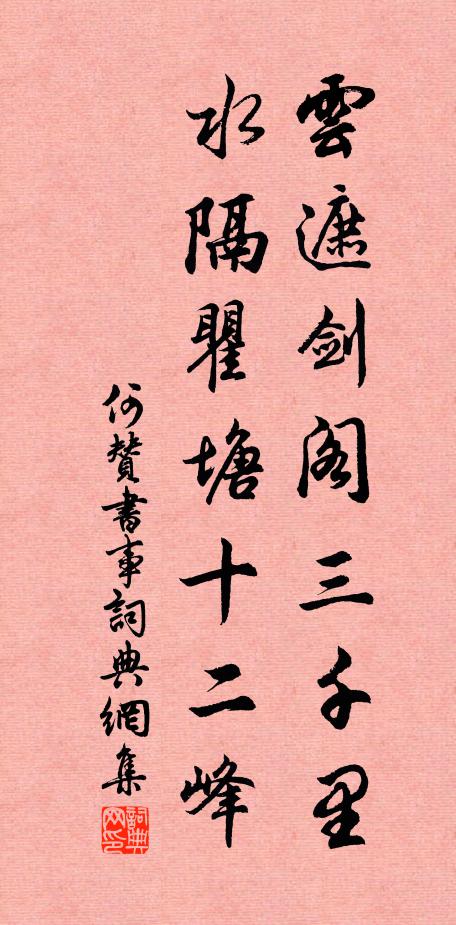 雲遮劍閣三千里
水隔瞿塘十二峰
何贊書事詞典網集
詞典网印